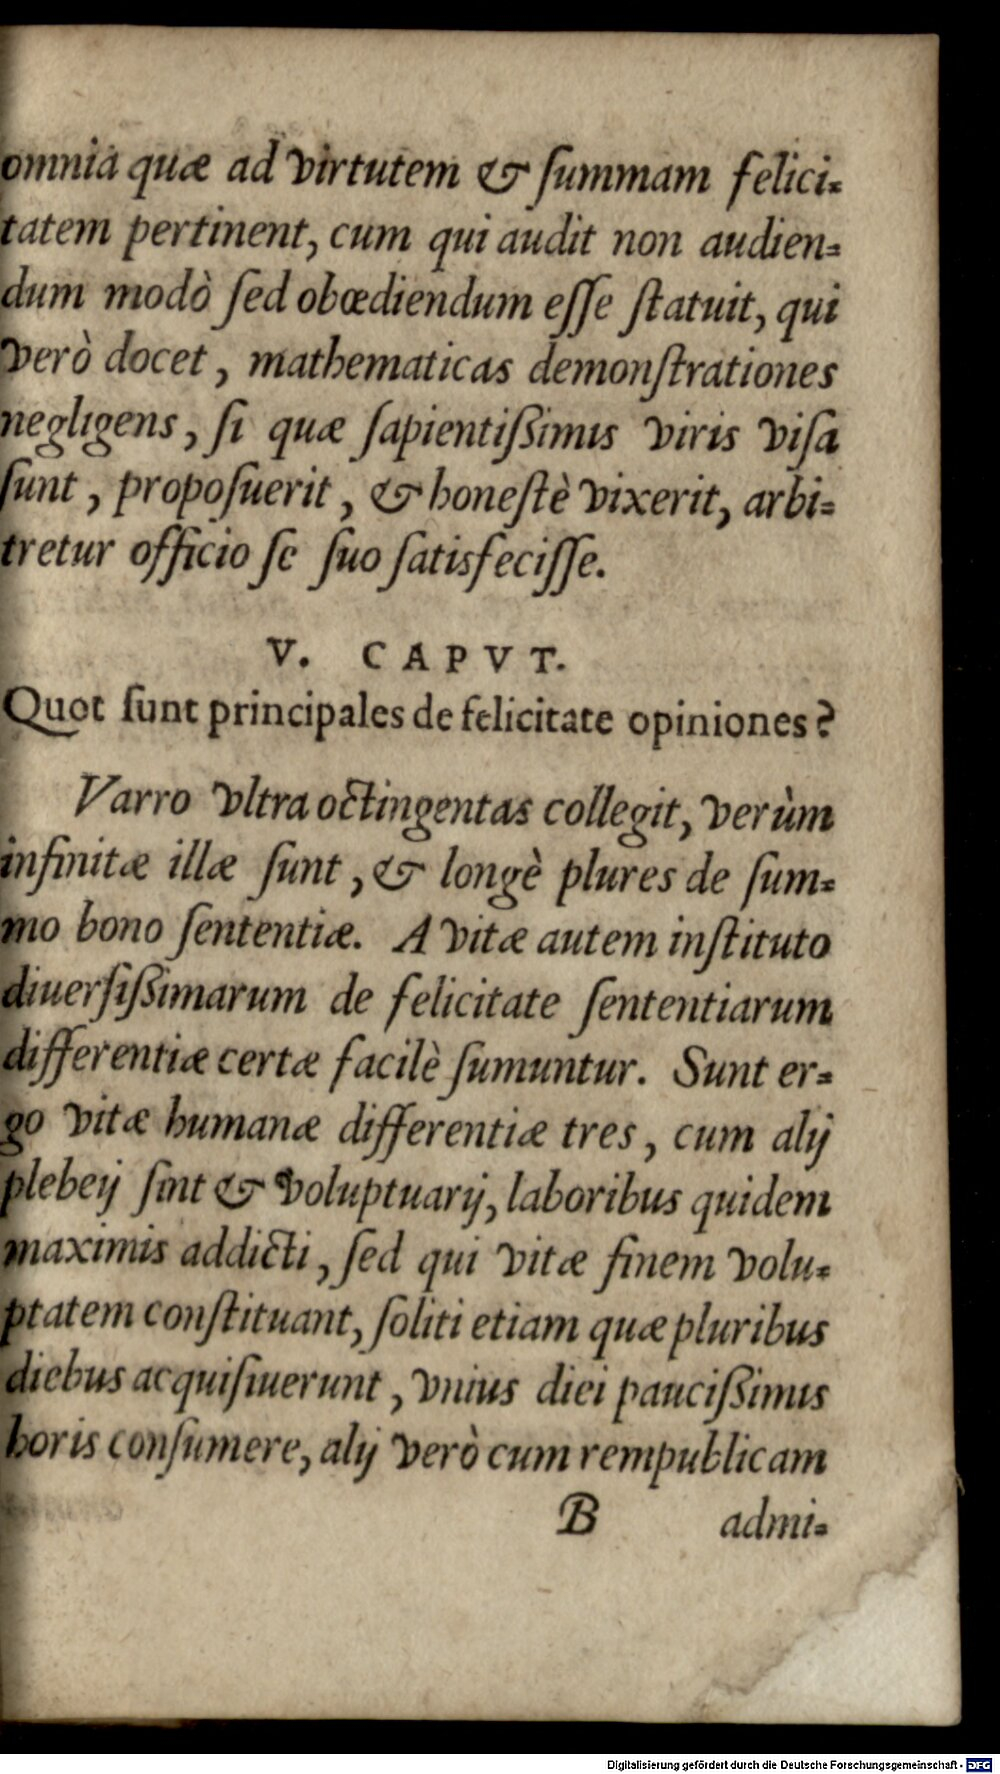 omnia quæ ad virtutem & ſummam felici-
tatem pertinent, cum qui audit non audien-
dum modò ſed obœdiendum eſſe ſtatuit, qui
verò docet, mathematicas demonſtrationes
negligens, ſi quæ ſapientiſſimis viris viſa
ſunt, propoſuerit, & honeſtè vixerit, arbi-
tretur officio ſe ſuo ſatisfeciſſe.
V. CAPVT.
Quot ſunt principales de felicitate opiniones?
Varro vltra octingentas collegit, verùm
infinitæ illæ ſunt, & longè plures de ſum-
mo bono ſententiæ. A vitæ autem inſtituto
diuerſiſſimarum de felicitate ſententiarum
differentiæ certæ facilè ſumuntur. Sunt er-
go vitæ humanæ differentiæ tres, cum alij
plebeij ſint & voluptuarij, laboribus quidem
maximis addicti, ſed qui vitæ finem volu-
ptatem conſtituant, ſoliti etiam quæ pluribus
diebus acquiſiuerunt, vnius diei pauciſſimis
horis conſumere, alij verò cum rempublicam
B admi-
Digitalisierung gefördert durch die Deutsche Forschungsgemeinschaft - DFG